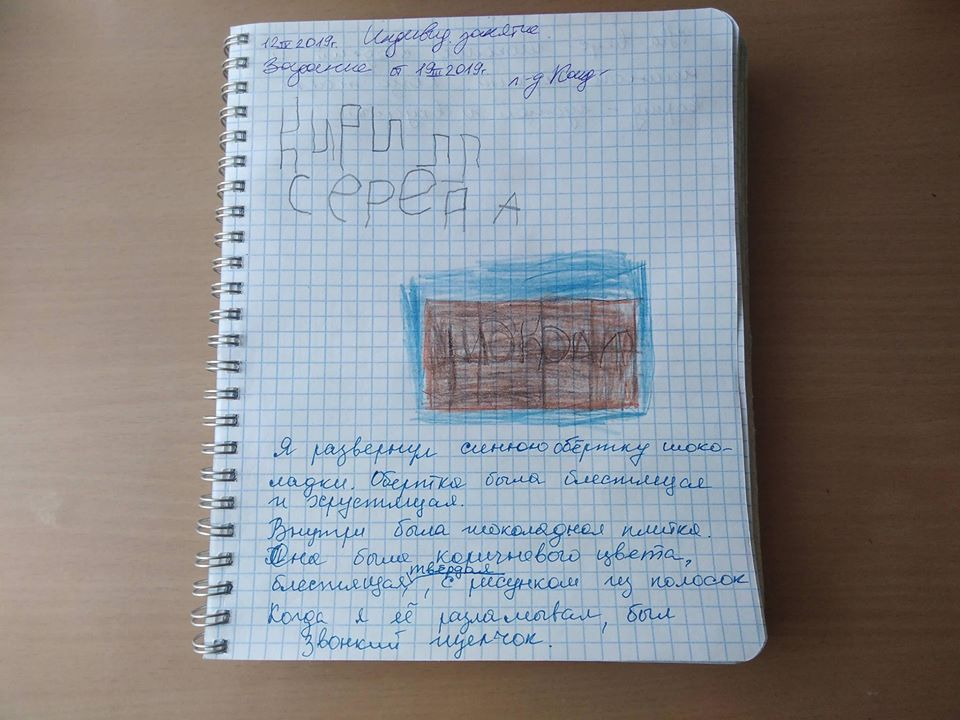 12 III 2019г. Индивид. занятие.
Задание от 19 III 2019г.
Кирилл
Серёда
Шоколад
Я развернул синюю обёртку шоко-
ладки. Обертка была блестящая
и хрустящая.
Внутри была шоколадная плитка.
Она была коричневого цвета,
блестящая, твёрдая, с рисунком из полосок
Когда я её разламывал, был
звонкий щелчок.